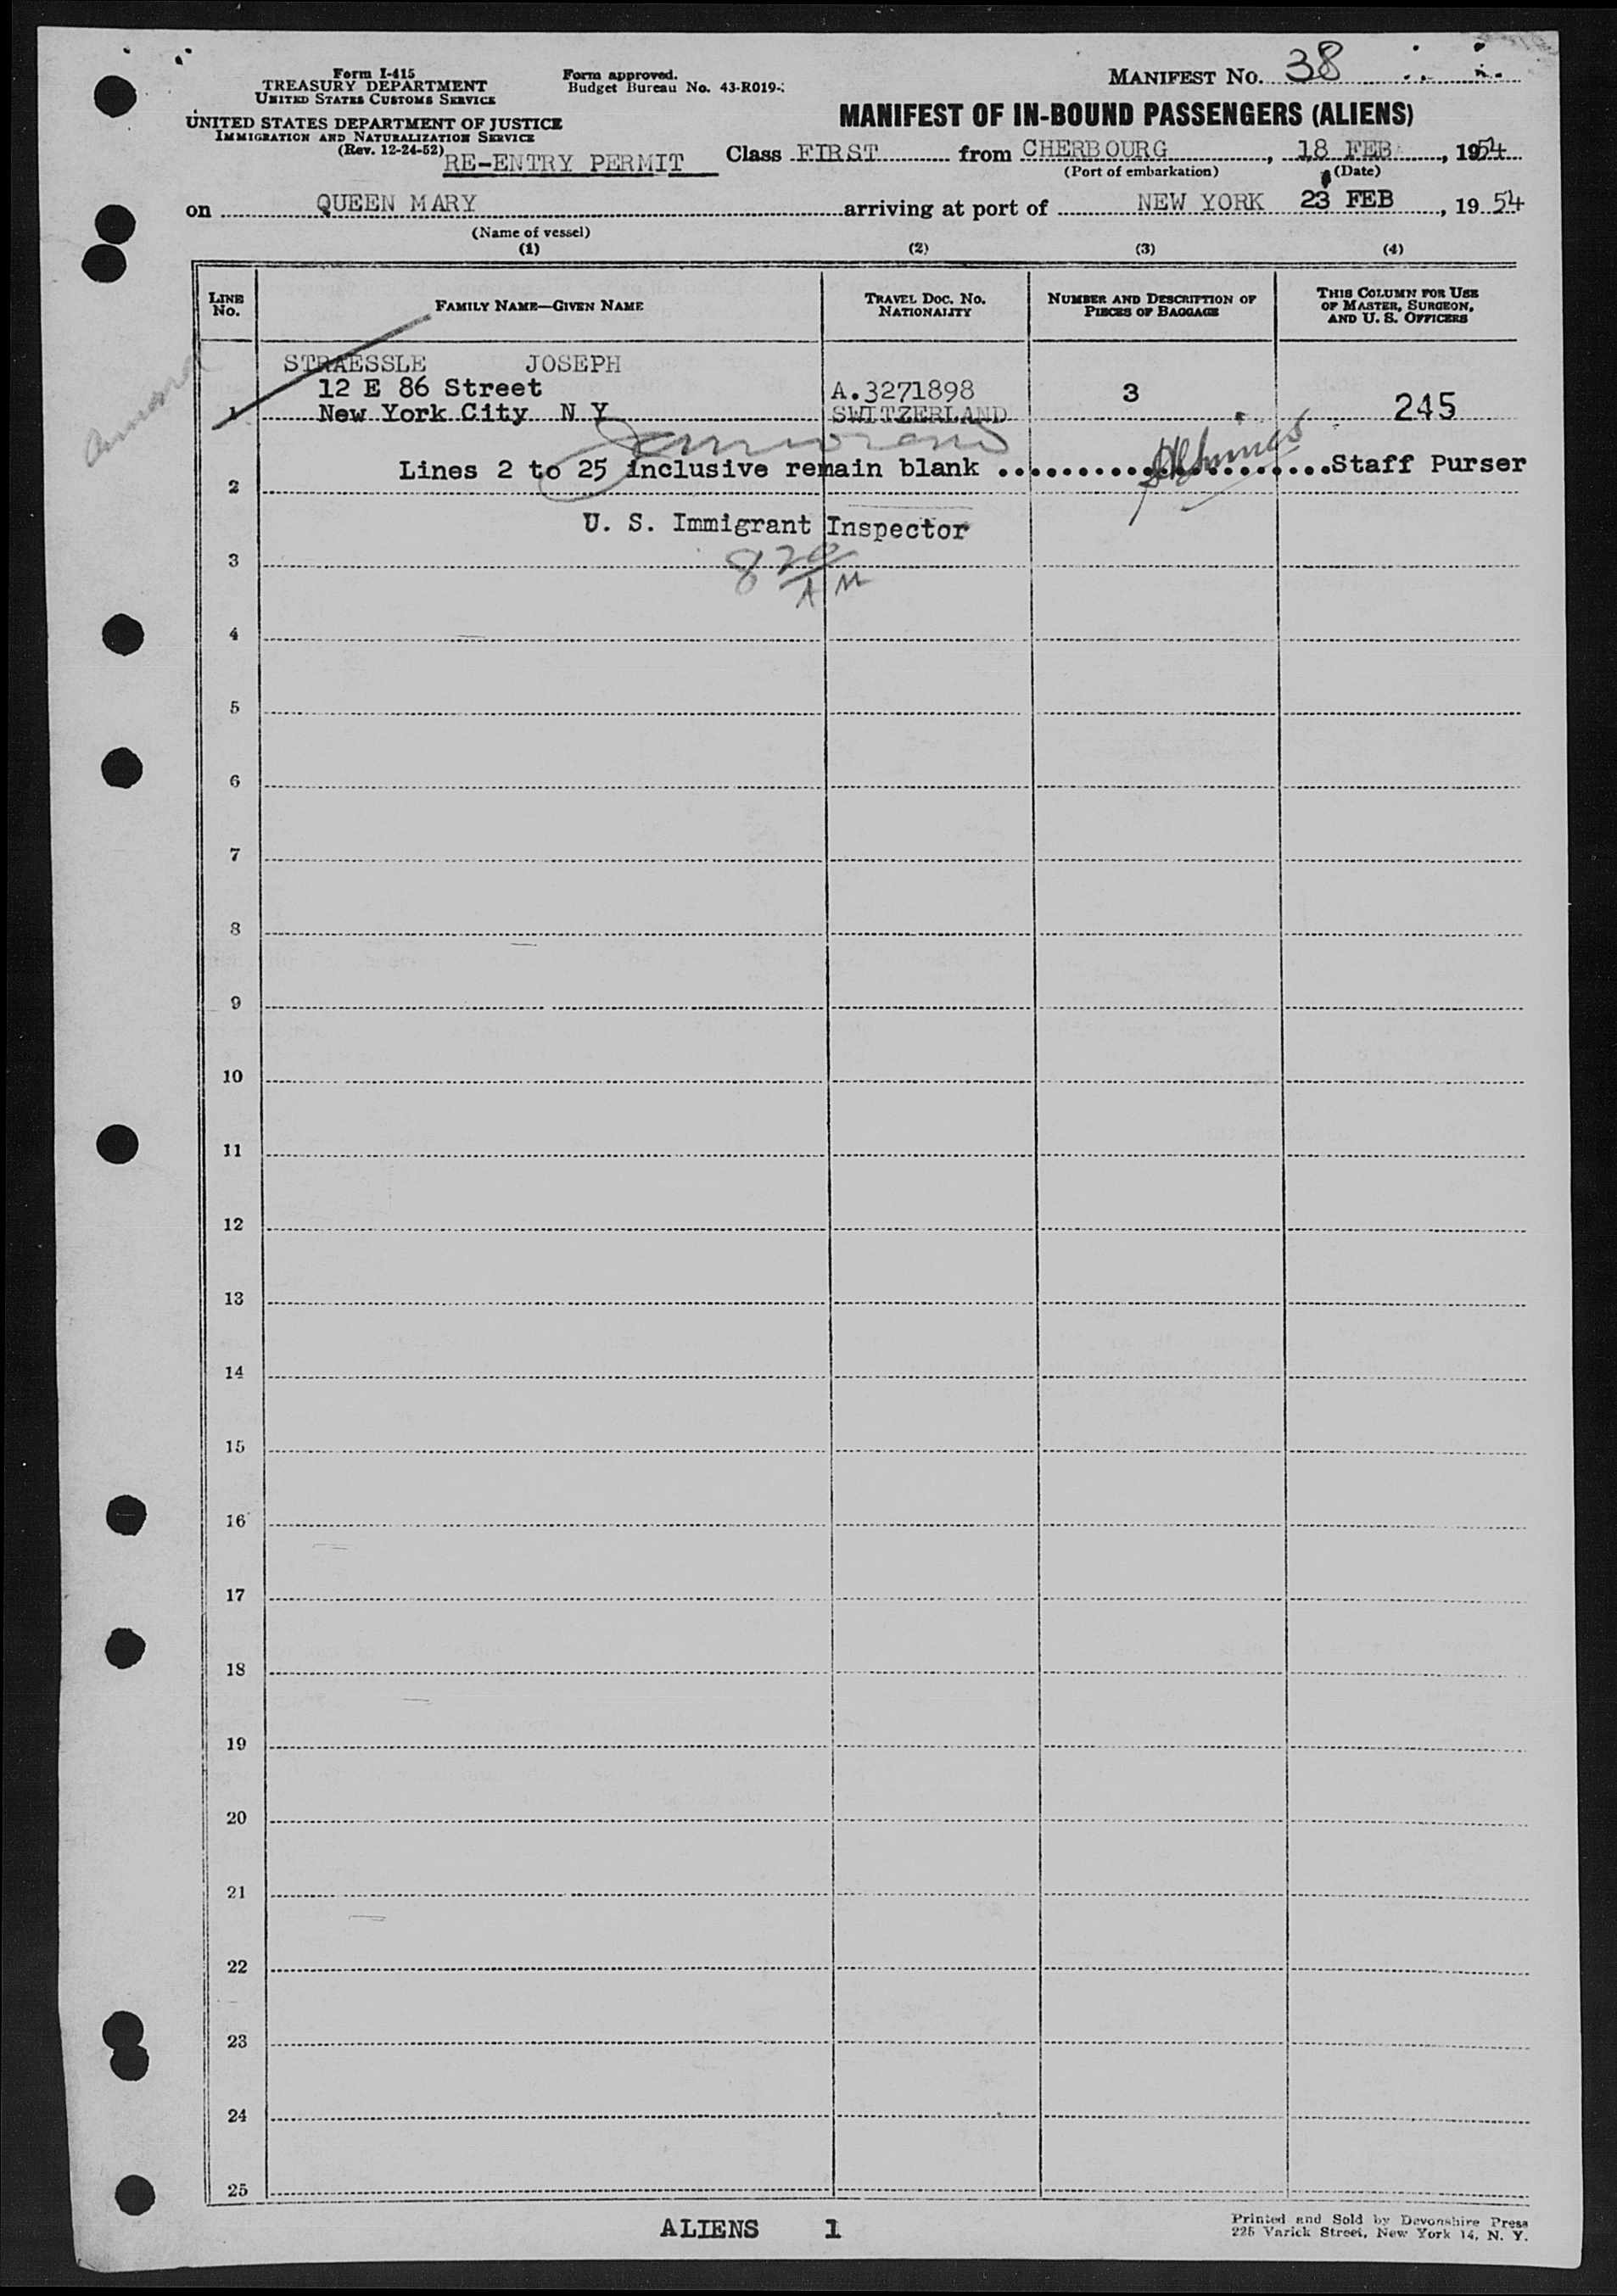 Form I-415
TREASURY DEPARTMENT
UNITED STATES CUSTOMS SERVICE
UNITED STATES DEPARTMENT OF JUSTICE
IMMIGRATION AND NATURALIZATION SERVICE
(Rev. 12-24-52)
Form approved.
Budget Bureau No. 43-R019-
MANIFEST NO. 38
MANIFEST OF IN-BOUND PASSENGERS (ALIENS)
RE-ENTRY PERMIT Class FIRST from CHERBOURG, 18 FEB, 1954
(Port of embarkation) (Date)
on QUEEN MARY arriving at port of NEW YORK 23 FEB, 1954
(Name of vessel)
(1) (2) (3) (4)
LINE NO. FAMILY NAME—GIVEN NAME TRAVEL DOC. NO. NATIONALITY NUMBER AND DESCRIPTION OF PIECES OF BAGGAGE THIS COLUMN FOR USE OF MASTER, SURGEON, AND U. S. OFFICERS
STRAESSLE JOSEPH
12 E 86 Street A.3271898 3
1 New York City N Y SWITZERLAND 245
Lines 2 to 25 inclusive remain blank ......................Staff Purser
2
U. S. Immigrant Inspector
3 8 20/AM
4
5
6
7
8
9
10
11
12
13
14
15
16
17
18
19
20
21
22
23
24
25
ALIENS 1
Printed and Sold by Devonshire Press
225 Varick Street, New York 14, N. Y.